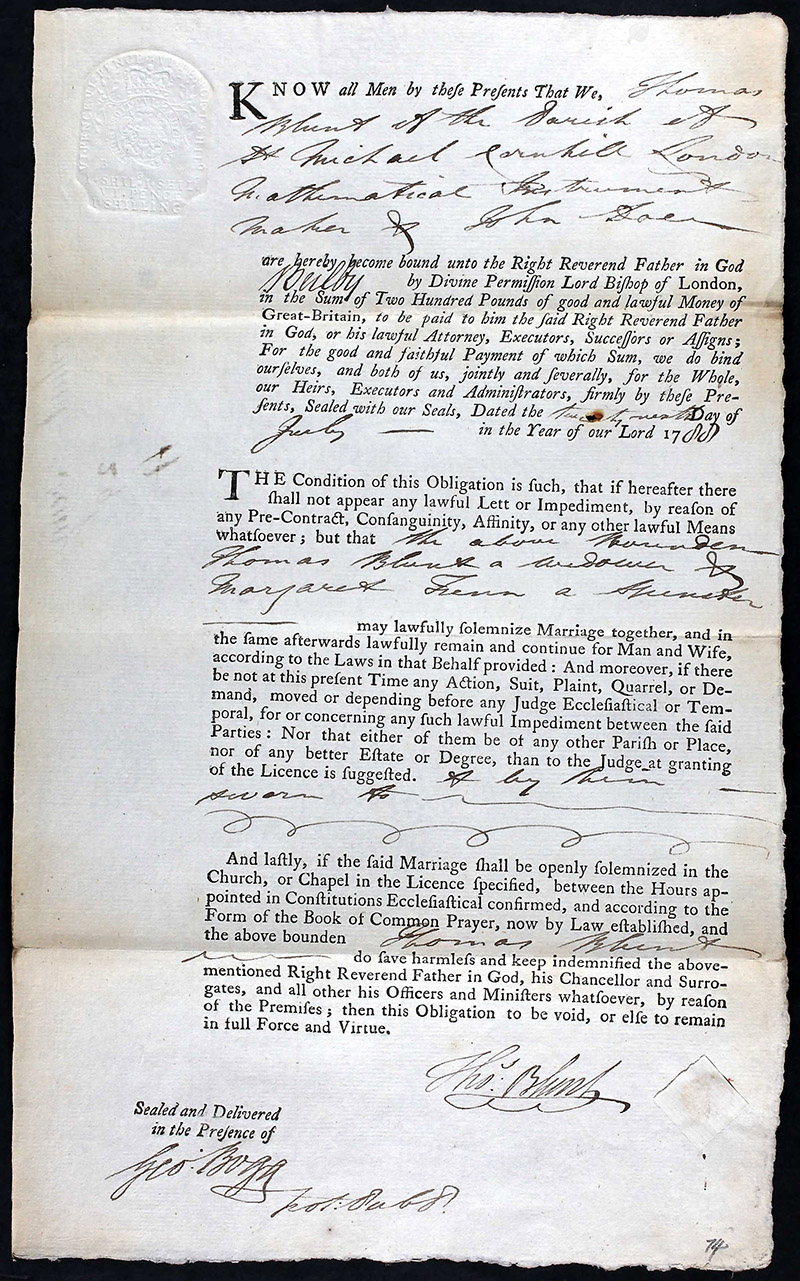 KNOW all Men by theſe Preſents That We, Thomas
Blunt of the Parish of
St Michael Cornhill London
Mathematical Instrument
Maker & John
are hereby become bound unto the Right Reverend Father in God
Beilby by Divine Permiſſion Lord Biſhop of London,
in the Sum of Two Hundred Pounds of good and lawful Money of
Great-Britain, to be paid to him the ſaid Right Reverend Father
in God, or his lawful Attorney, Executors, Succeſſors or Aſſigns;
For the good and faithful Payment of which Sum, we do bind
ourſelves, and both of us, jointly and ſeverally, for the Whole,
our Heirs, Executors and Adminiſtrators, firmly by theſe Pre-
ſents, Sealed with our Seals, Dated the Day of
July in the Year of our Lord 1788
THE Condition of this Obligation is ſuch, that if hereafter there
ſhall not appear any lawful Lett or Impediment, by reaſon of
any Pre-Contract, Conſanguinity, Affinity, or any other lawful Means
whatſoever; but that the above Bounden
Thomas Blunt a Widower &
Margaret Fenn a Spinster
may lawfully ſolemnize Marriage together, and in
the ſame afterwards lawfully remain and continue for Man and Wife,
according to the Laws in that Behalf provided: And moreover, if there
be not at this preſent Time any Action, Suit, Plaint, Quarrel, or De-
mand, moved or depending before any Judge Eccleſiaſtical or Tem-
poral, for or concerning any ſuch lawful Impediment between the ſaid
Parties: Nor that either of them be of any other Pariſh or Place,
nor of any better Eſtate or Degree, than to the Judge at granting
of the Licence is ſuggeſted. & by them
sworn to
And laſtly, if the ſaid Marriage ſhall be openly ſolemnized in the
Church, or Chapel in the Licence ſpecified, between the Hours ap-
pointed in Conſtitutions Eccleſiaſtical confirmed, and according to the
Form of the Book of Common Prayer, now by Law eſtabliſhed, and
the above bounden Thomas Blunt
do ſave harmleſs and keep indemnified the above-
mentioned Right Reverend Father in God, his Chancellor and Surro-
gates, and all other his Officers and Miniſters whatſoever, by reaſon
of the Premiſes; then this Obligation to be void, or elſe to remain
in full Force and Virtue.
Thos. Blunt
Sealed and Delivered
in the Preſence of
Geo. Bogg
74